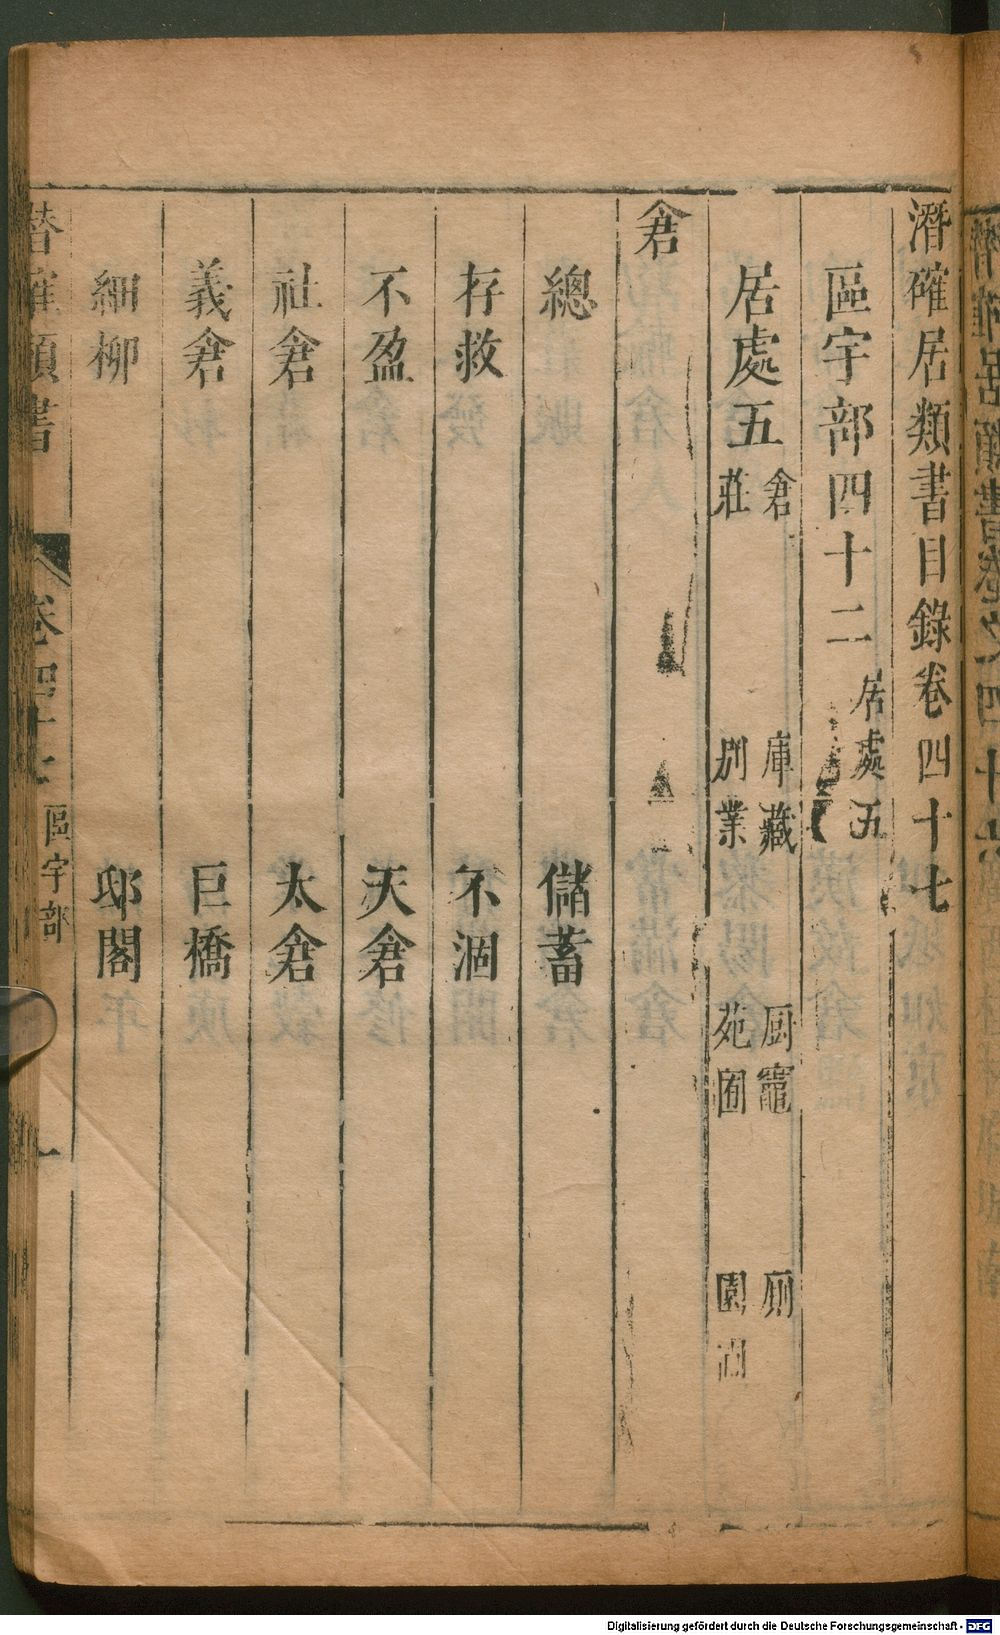 潛確居類書目錄卷四十七
區宇部四十二 居處五
居處五 倉 庫藏 厨竈 厠
莊 別業 苑囿 園
倉
總 儲蓄
存救 不涸
不盈 天倉
社倉 太倉
義倉 巨橋
細柳 邸閣
潛確類書 卷四十七 區宇部 一
Digitalisierung gefördert durch die Deutsche Forschungsgemeinschaft - DFG